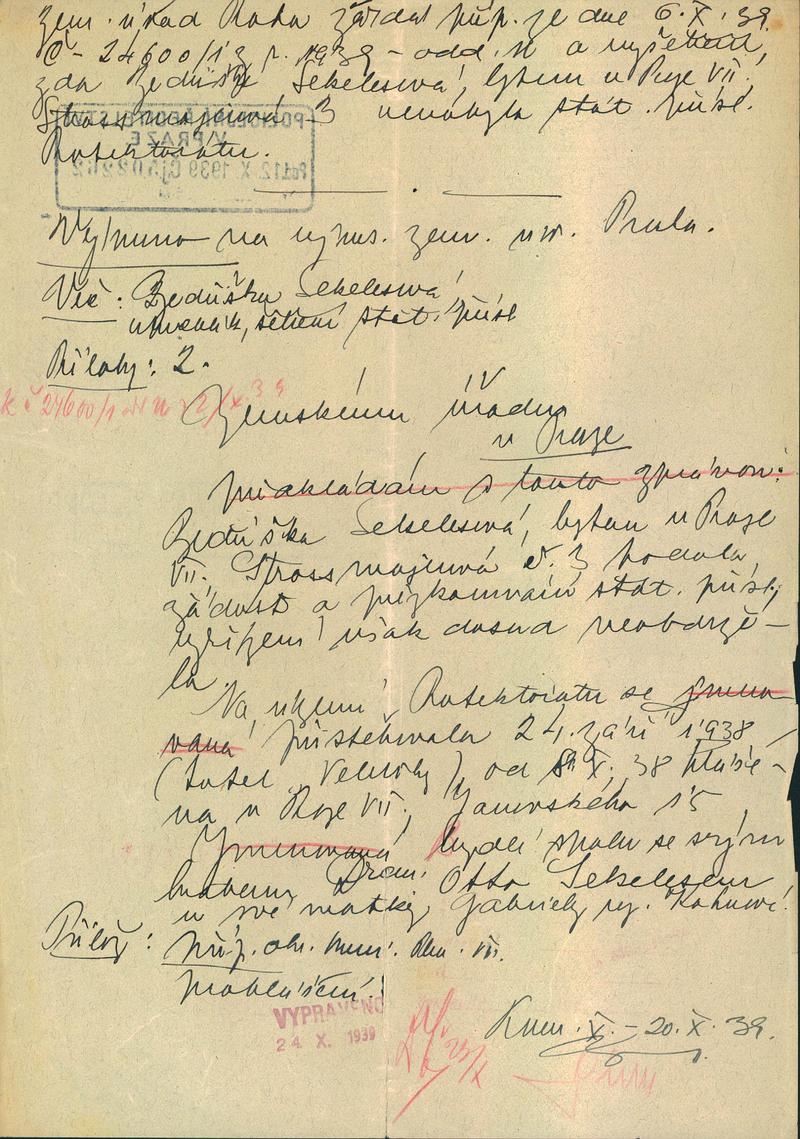 zem. úřad Praha žádal příp. ze dne 6.X.39.
Č - 24600/1 z r. 1939 - odd. N o vyšetření,
zda Bedřiška Sekelesová, bytem v Praze VII.
Strossmajerova 3 nenabyla stát. přísl.
Protektorátu.
Vyřízeno na vyhus. zem. úř. Praha.
Věc: Bedřiška Sekelesová,
stát. přísl.
Přílohy: 2.
k č 24600/1
Zemskému úřadu
v Praze
předkládám s touto zprávou:
Bedřiška Sekelesová, bytem v Praze
VII., Strossmajerova č. 3 podala
žádost o přezkoumání stát. přísl.,
vyřízení však dosud neobdrže-
la.
Na území Protektorátu se jmeno-
vaná přistěhovala 24. září 1938
(hotel Veletrhy), od 8.X.38 hláše-
na v Praze VII., Janovského 15
Jmenovaná bydlí spolu se svým
bratrem, Drem. Otto Sekelesem
u své matky, Gabriely
Přílož: příp. ob. kom. Pha. VII.
prohlášení.
VYPRAVENO
24 X. 1939
Kom. X. - 20.X.39.